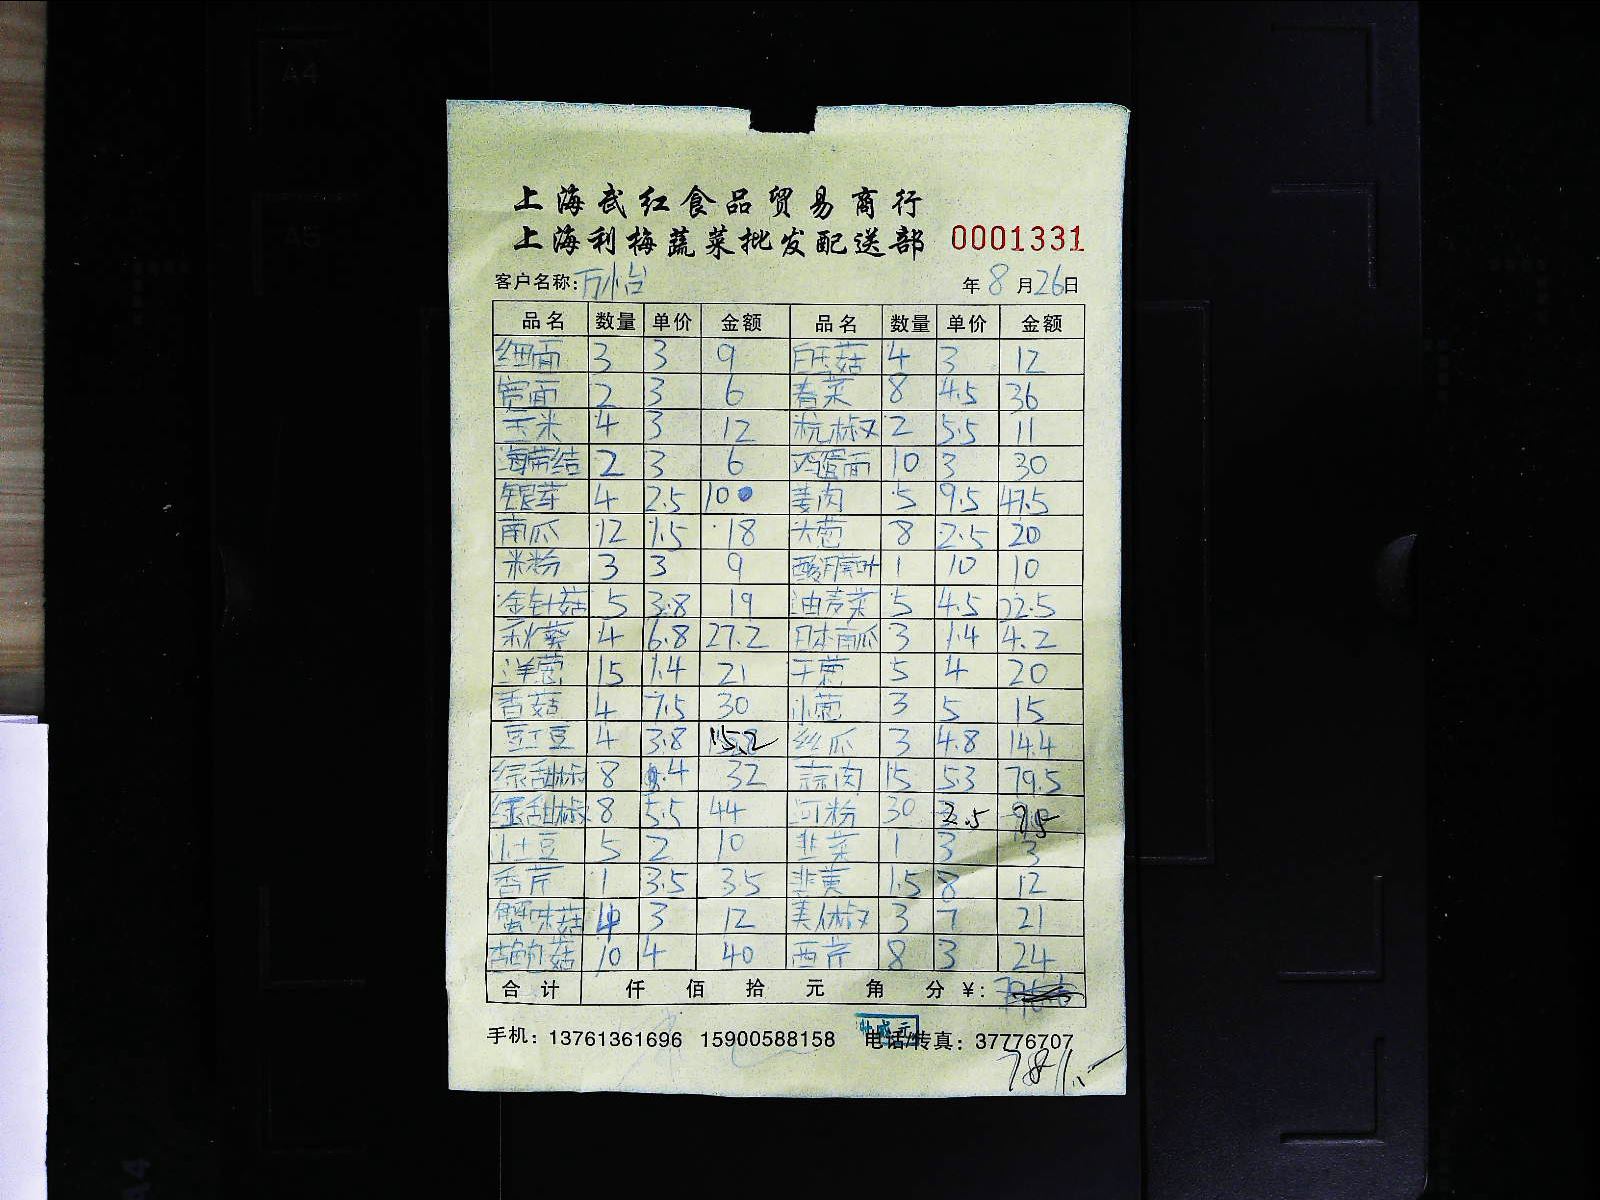 上海武红食品贸易商行
上海利梅蔬菜批发配送部 0001331
客户名称: 万怡 年 8 月 26 日
品名 数量 单价 金额 品名 数量 单价 金额
细面 3 3 9 白玉菇 4 3 12
宽面 2 3 6 春菜 8 4.5 36
玉米 4 3 12 杭椒 2 5.5 11
海带结 2 3 6 鸡蛋面 10 3 30
银芽 4 2.5 10 姜肉 5 9.5 47.5
南瓜 12 1.5 18 大葱 8 2.5 20
米粉 3 3 9 酸 叶 1 10 10
金针菇 5 3.8 19 油麦菜 5 4.5 22.5
秋葵 4 6.8 27.2 日本南瓜 3 1.4 4.2
洋葱 15 1.4 21 干葱 5 4 20
香菇 4 7.5 30 小葱 3 5 15
豇豆 4 3.8 15.2 丝瓜 3 4.8 14.4
绿甜椒 8 4 32 蒜肉 15 5.3 79.5
红甜椒 8 5.5 44 河粉 30 .5
小土豆 5 2 10 韭菜 1 3 3
香芹 1 3.5 3.5 韭黄 1.5 8 12
蟹味菇 4 3 12 美人椒 3 7 21
鲍菇 10 4 40 西芹 8 3 24
合计 仟 佰 拾 元 角 分 ¥:
手机: 13761361696 15900588158 电话/传真: 37776707
781.